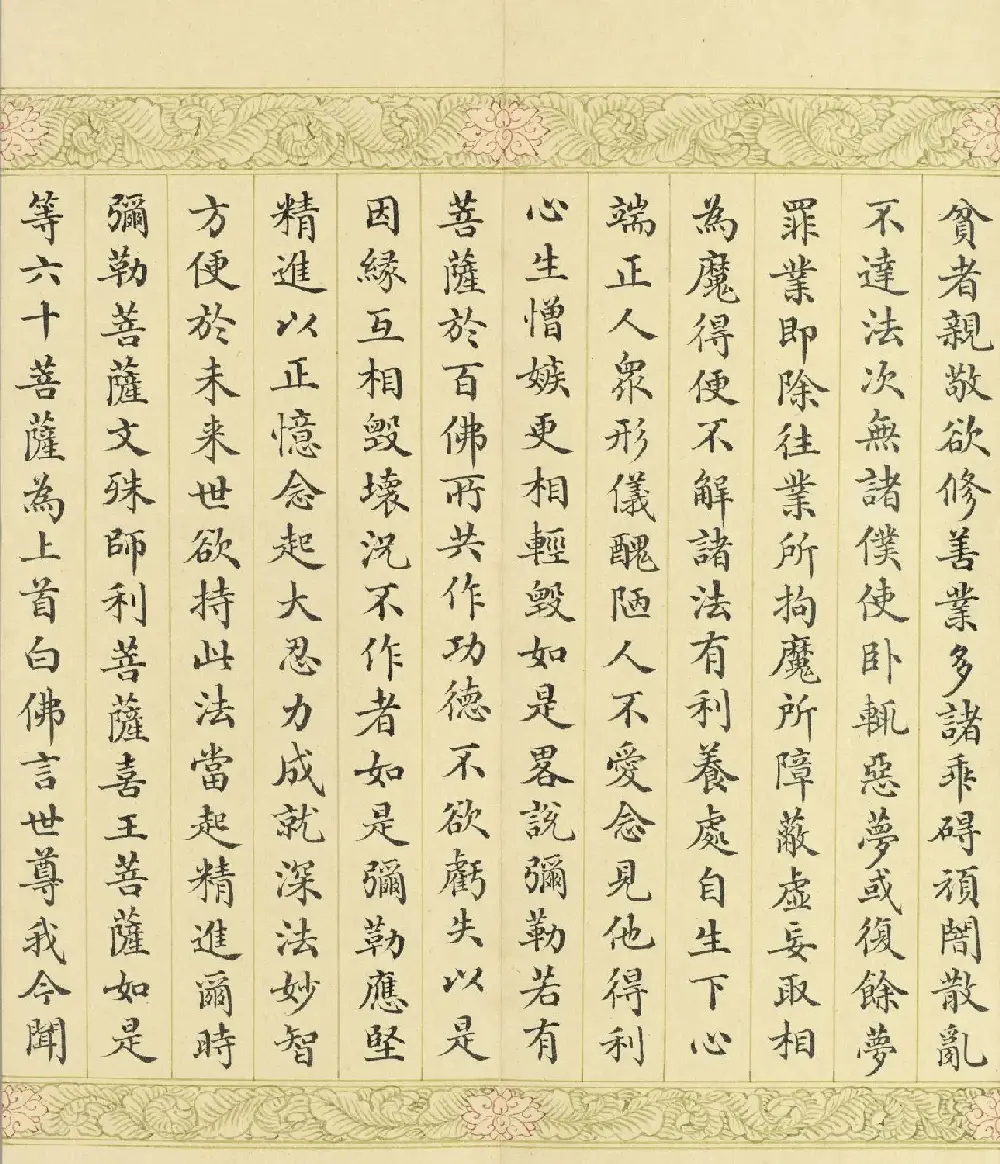 貧者親敬欲修善業多諸乖碍頑闇散亂
不達法次無諸僕使卧輒惡夢或復餘夢
罪業即除往業所拘魔所障蔽虚妄取相
為魔得便不解諸法有利養處自生下心
端正人衆形儀醜陋人不愛念見他得利
心生憎嫉更相輕毀如是畧說彌勒若有
菩薩於百佛所共作功德不欲虧失以是
因緣互相毀壞況不作者如是彌勒應堅
精進以正憶念起大忍力成就深法妙智
方便於未来世欲持此法當起精進爾時
彌勒菩薩文殊師利菩薩喜王菩薩如是
等六十菩薩為上首白佛言世尊我今聞